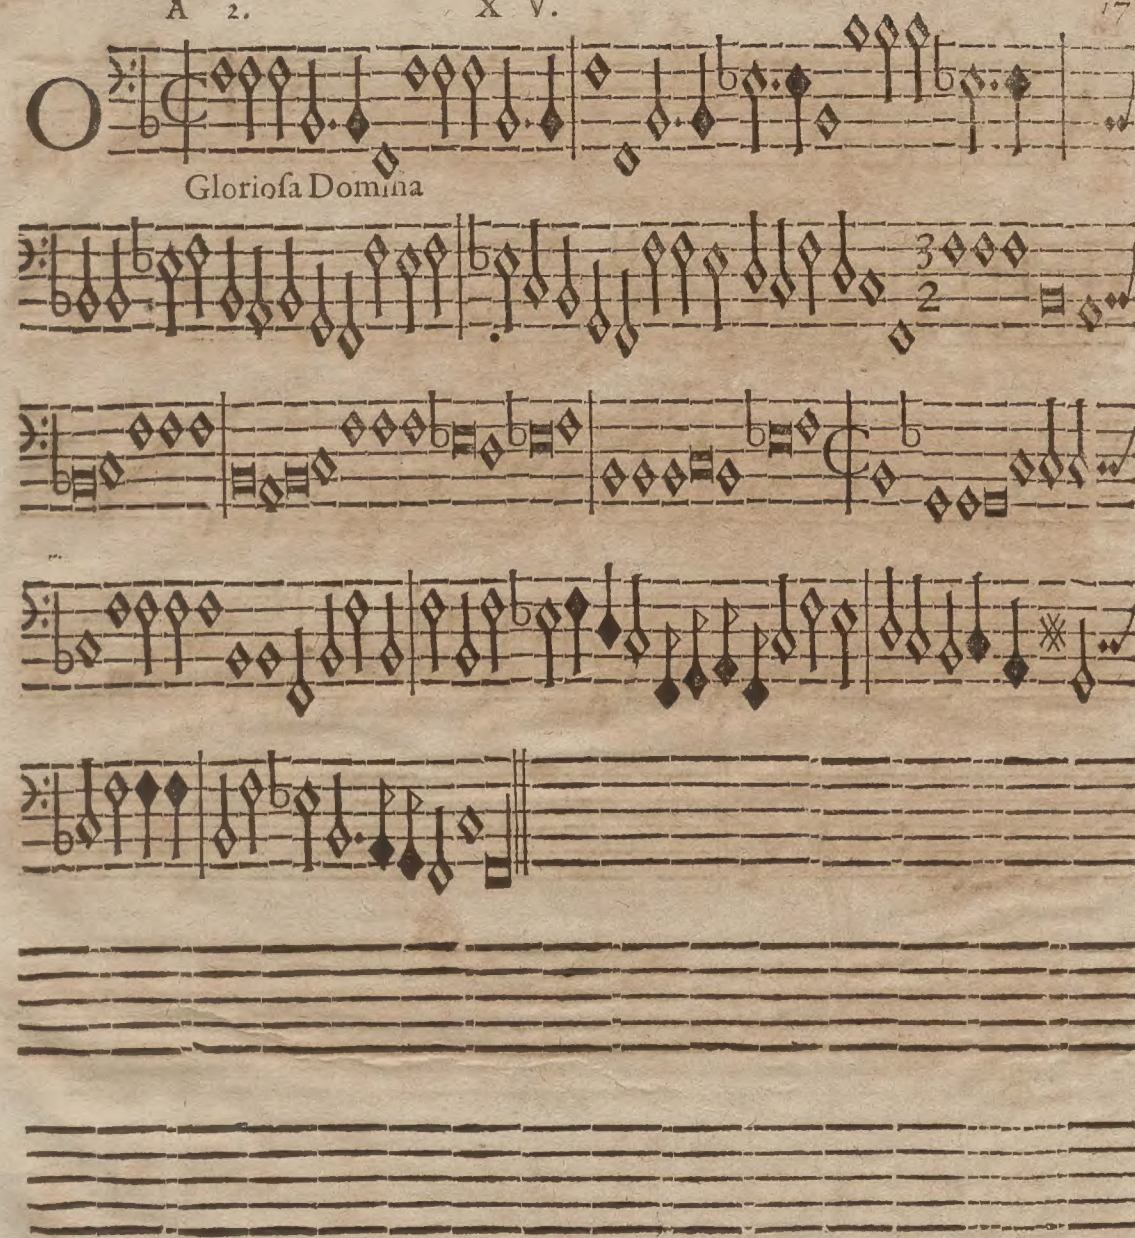 A 2. X V. 17
O
Glorioſa Domina
3
2